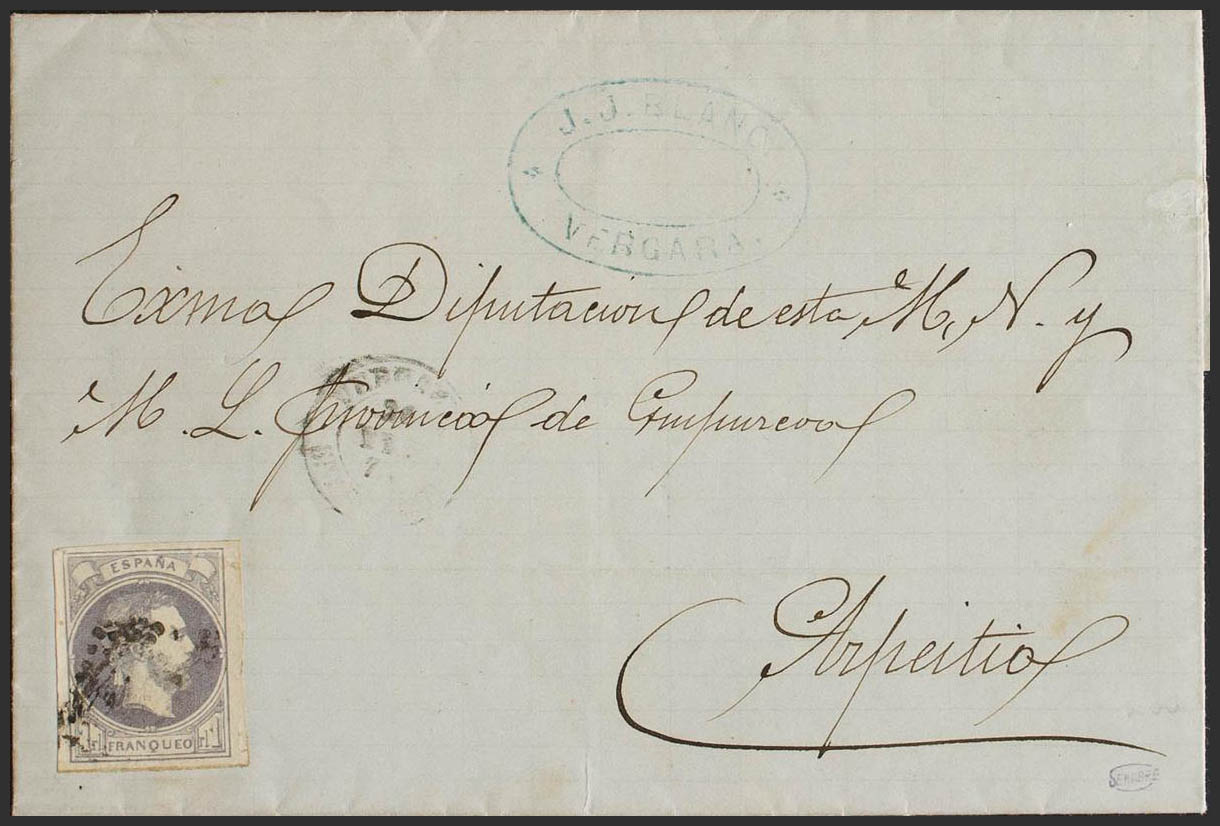 J. J. BLANC
VERGARA.
Exma Diputacion de esta M. N. y
M. L. provincia de Guipuzcoa
Azpeitia
ESPAÑA
FRANQUEO